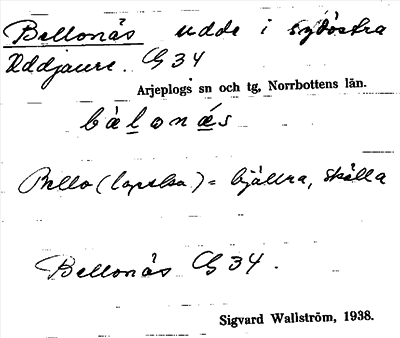 Bellonäs udde i sydöstra
Uddjaure. G 34
Arjeplogs sn och tg, Norrbottens län.
bàlonä́s
Bello (lapska) = bjällra, skälla
Bellonäs G 34.
Sigvard Wallström, 1938.